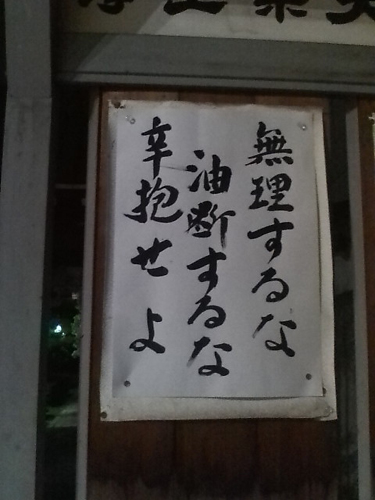 無理するな
油断するな
辛抱せよ